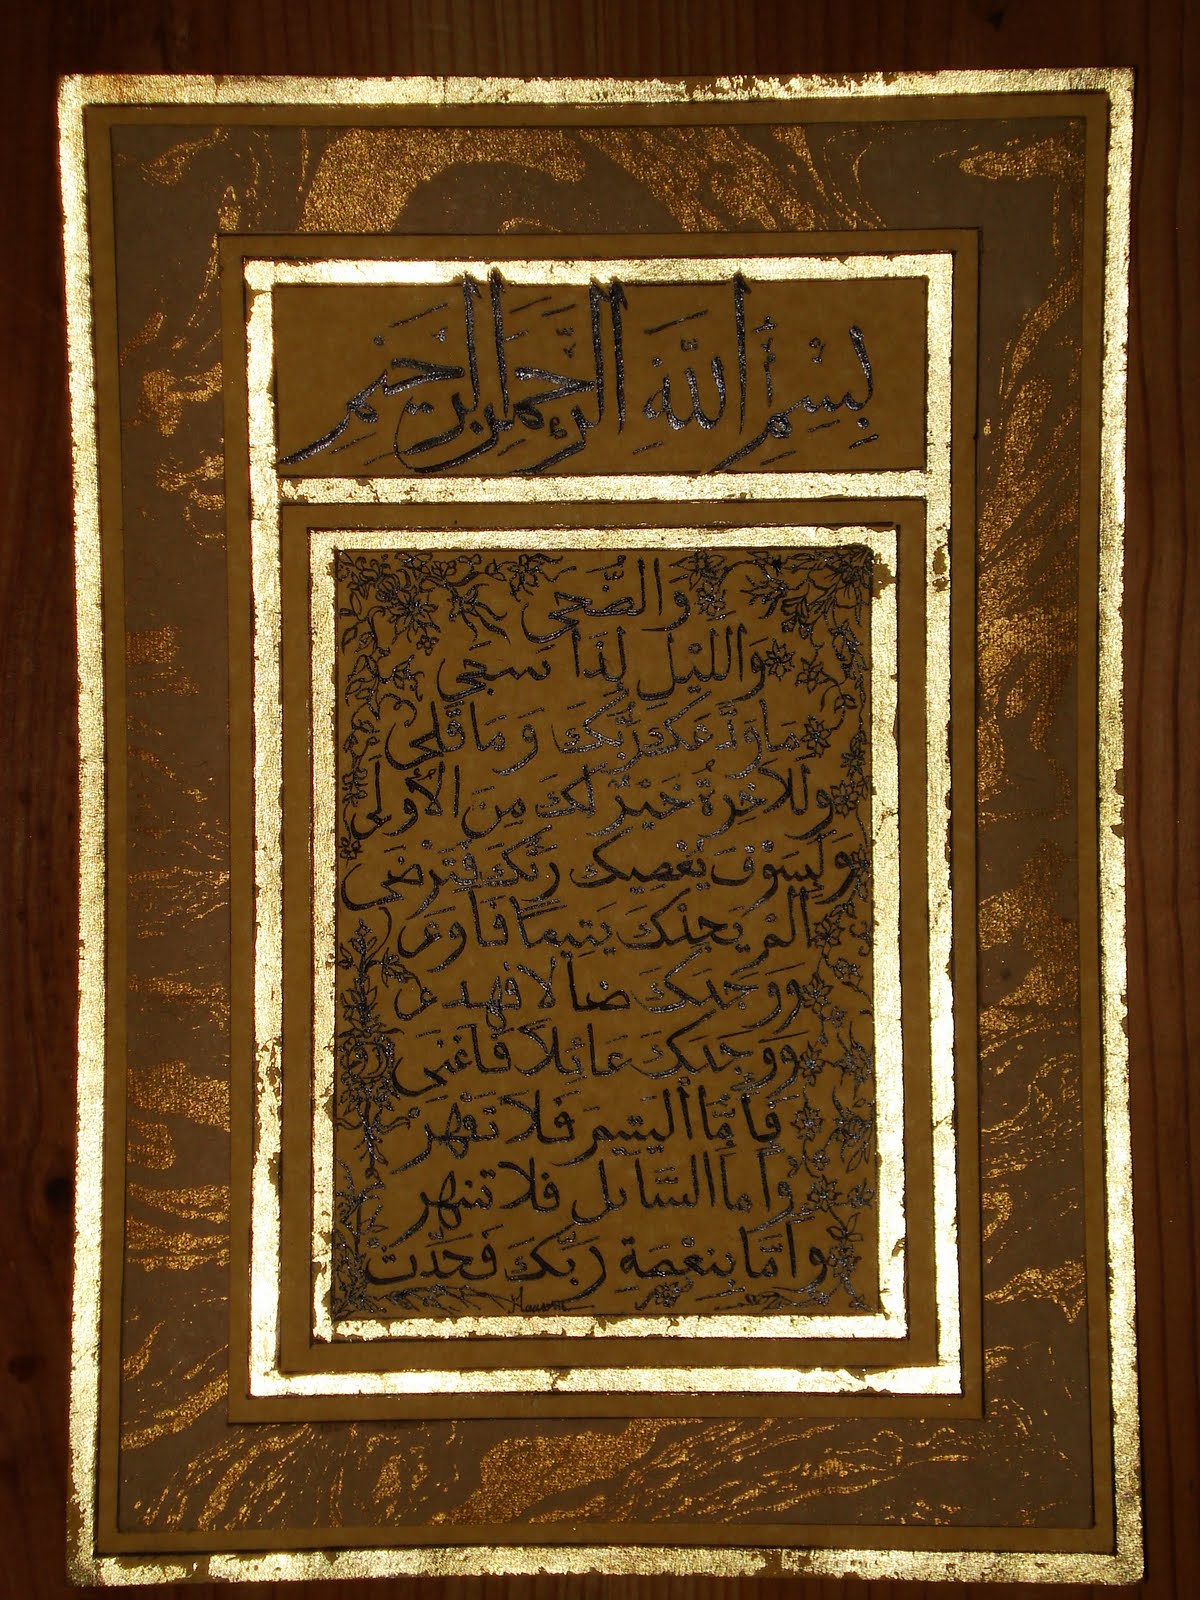 بِسْمِ ٱللَّهِ الرَّحْمٰنِ الرَّحِيْمِ
وَالضُّحَى
وَالليْلِ إِذَا سَجَى
مَا وَدَّعَكَ رَبُّكَ وَمَا قَلَى
وَلَلآخِرَةُ خَيْرٌ لَكَ مِنَ الْأُولَى
وَلَسَوْفَ يُعْطِيكَ رَبُّكَ فَتَرْضَى
أَلَمْ يَجِدْكَ يَتِيمًا فَآوَى
وَوَجَدَكَ ضَالًا فَهَدَى
وَوَجَدَكَ عَائِلًا فَأَغْنَى
فَأَمَّا اليَتِيمَ فَلَا تَقْهَرْ
وَأَمَّا السَّائِلَ فَلَا تَنْهَرْ
وَأَمَّا بِنِعْمَةِ رَبِّكَ فَحَدِّثْ